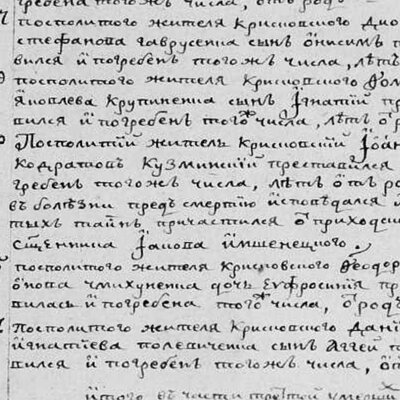 гребена того жъ числа, отъ род
посполитого жителя Крисковского Дио
Стефанова Гаврусенка сынъ Онисимъ п
вился и погребенъ того жъ числа, лѣтъ
посполитого жителя Крисковского Ѳом
Яковлева Крупиненка сынъ Игнатій пр
вился и погребенъ того жъ числа, лѣтъ ѿ р
Посполитій житель Крисковскій Иоан
Кодратовъ Кузминскій преставился
гребенъ того жъ числа, лѣтъ ѿ ро
въ болѣзни предъ смертію исповѣдался и
тыхъ таинъ причастился ѿ приходс
сщенника Иакова
посполитого жителя Крисковского Ѳеодор
дочь Евфросинія пр
вилась и погребена того жъ числа, ѿ род
Посполитого жителя Крисковского Дані
Игнатіева сынъ Аггей п
вился и погребенъ того жъ числа, ѿ
итого въ части третой умерши